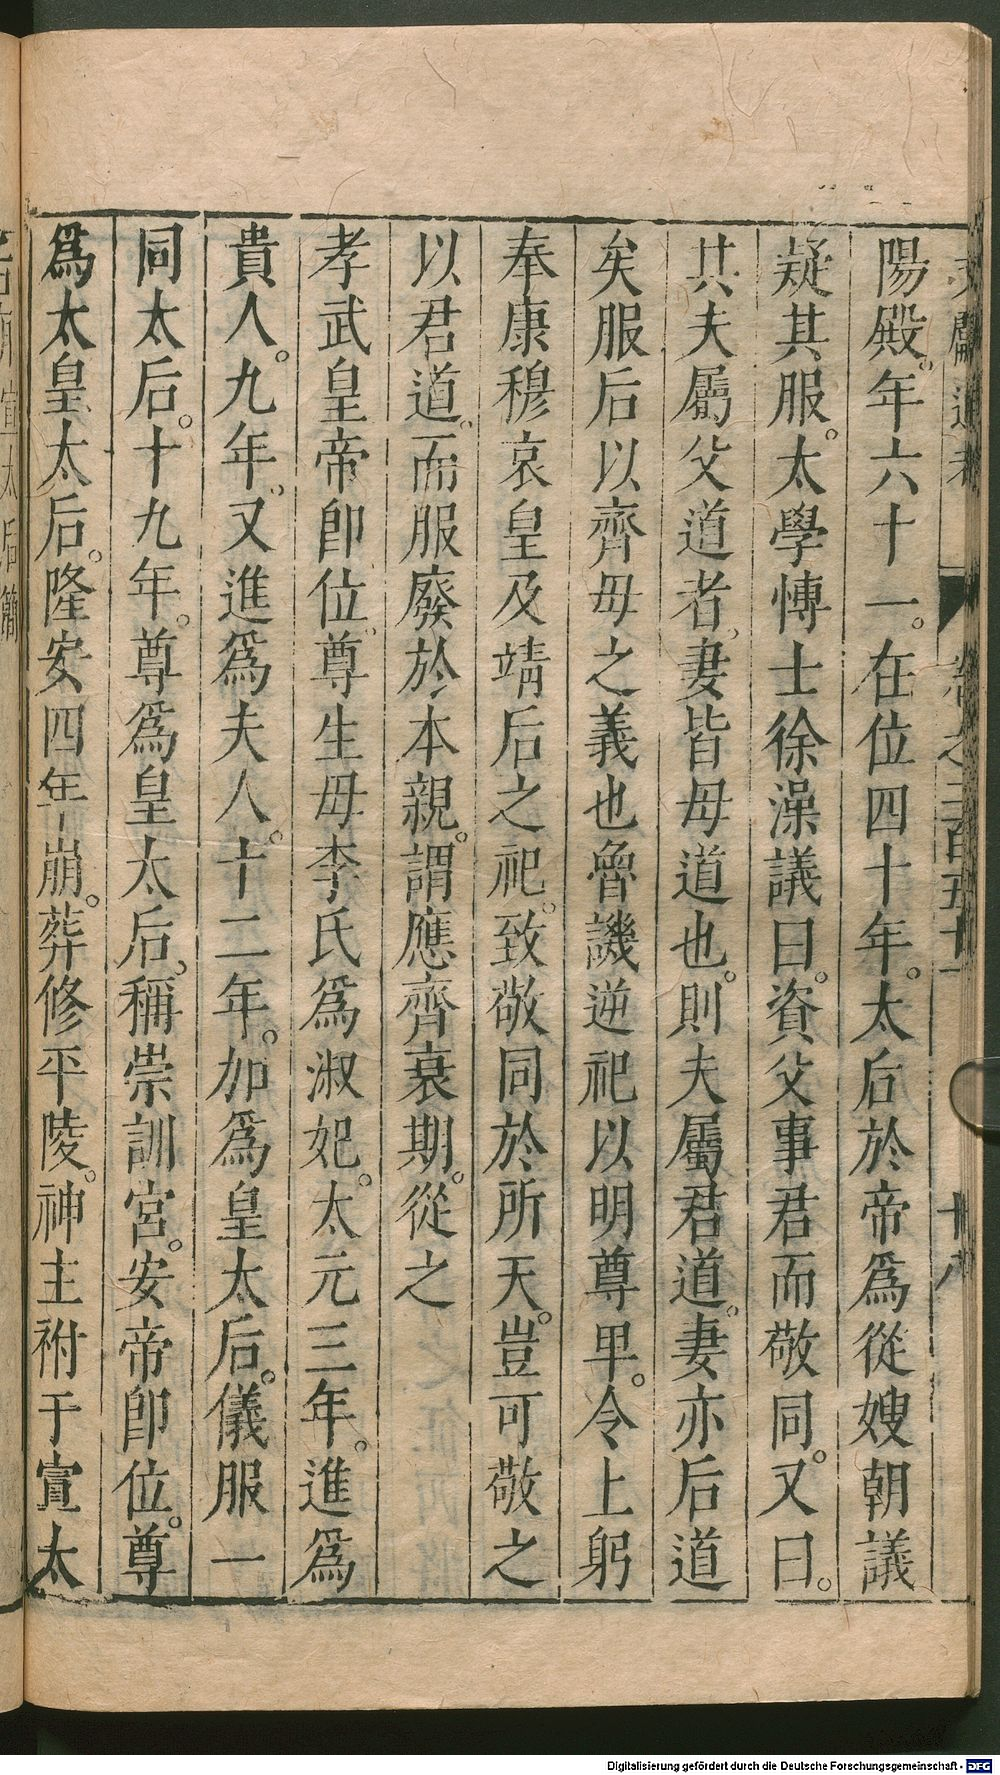 文獻通考 卷之二百五十一 十八
陽殿。年六十一。在位四十年。太后於帝爲從嫂朝議
疑其服。太學博士徐藻議曰。資父事君而敬同。又曰。
其夫屬父道者。妻皆母道也。則夫屬君道。妻亦后道
矣服后以齊母之義也魯譏逆祀以明尊卑。今上躬
奉康穆哀皇及靖后之祀。致敬同於所天。豈可敬之
以君道。而服廢於本親。謂應齊衰期。從之
孝武皇帝即位。尊生母李氏爲淑妃。太元三年。進爲
貴人。九年。又進爲夫人。十二年。加爲皇太后。儀服一
同太后。十九年。尊爲皇太后。稱崇訓宮。安帝即位。尊
爲太皇太后。隆安四年崩。葬修平陵。神主祔于宣太
后廟宣太后簡
Digitalisierung gefördert durch die Deutsche Forschungsgemeinschaft - DFG